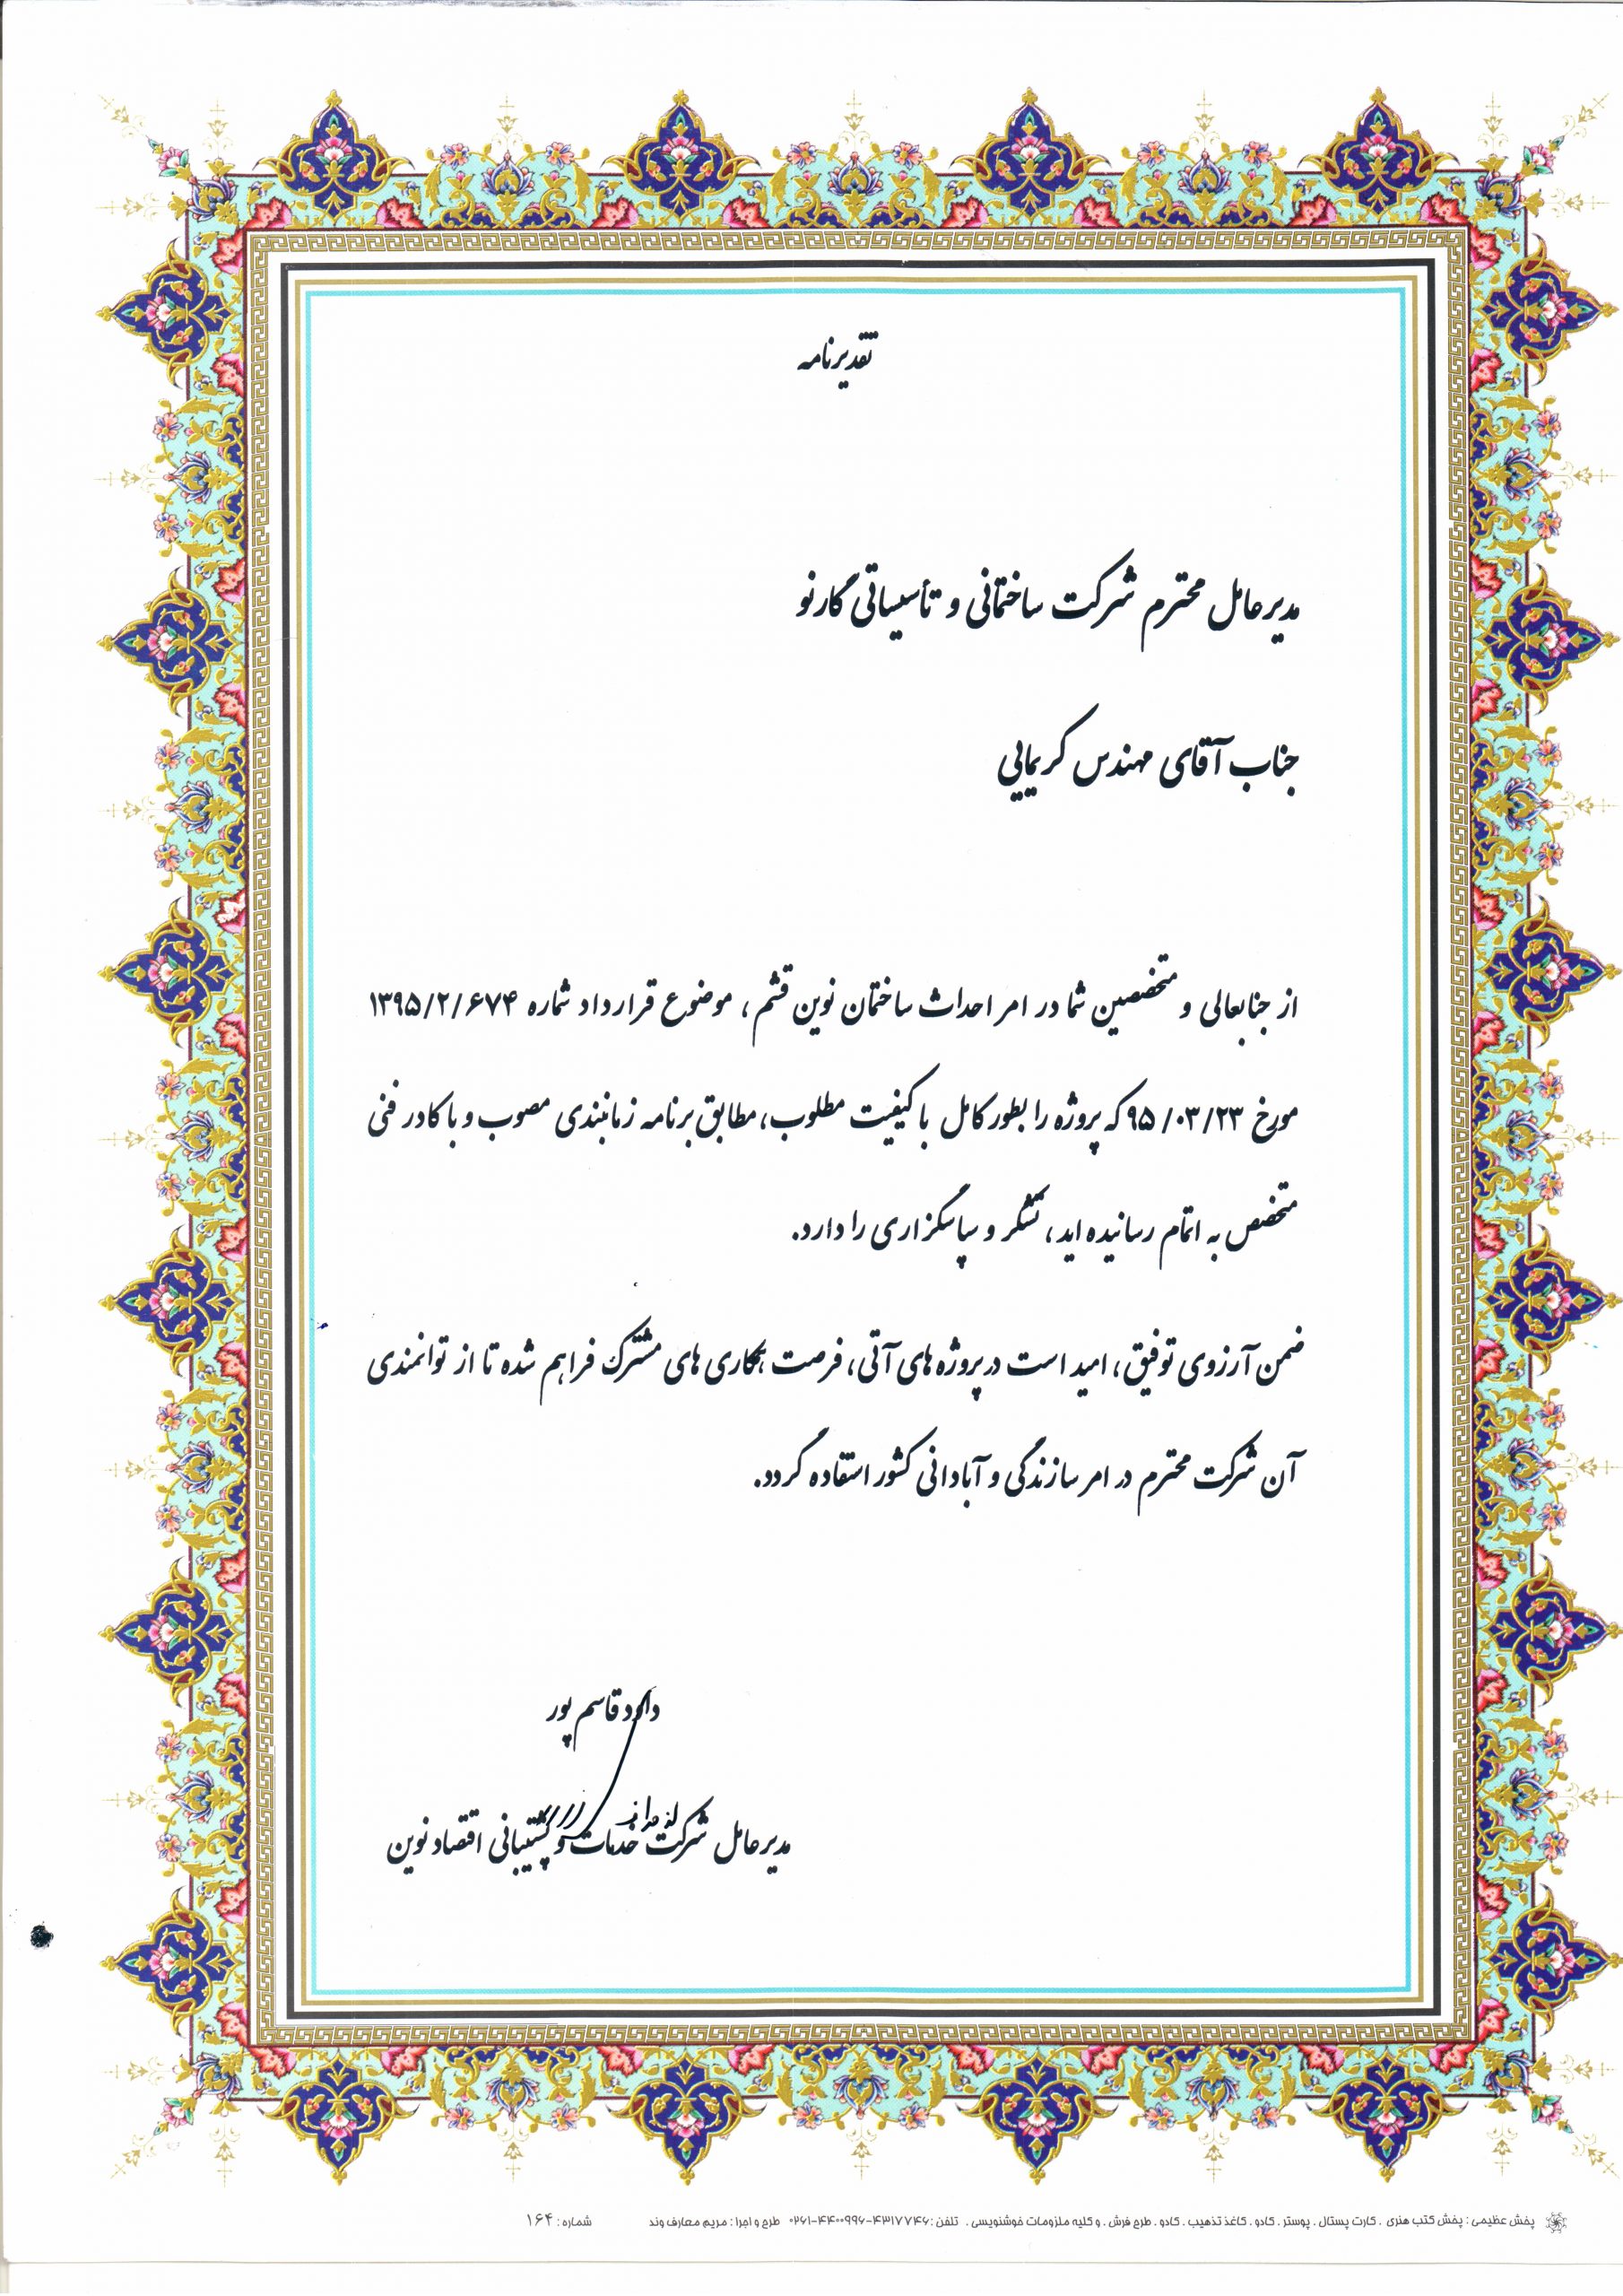 تقدیرنامه
مدیرعامل محترم شرکت ساختمانی و تأسیساتی گارنو
جناب آقای مهندس کریمایی
از جنابعالی و متخصصین شما در امر احداث ساختمان نوین قشم ، موضوع قرارداد شماره ۱۳۹۵/۲/۶۷۴
مورخ ۹۵/۰۳/۲۳ که پروژه را بطور کامل با کیفیت مطلوب، مطابق برنامه زمانبندی مصوب و با کادر فنی
متخصص به اتمام رسانیده اید، تشکر و سپاسگزاری را دارد.
ضمن آرزوی توفیق، امید است در پروژه های آتی، فرصت همکاری های مشترک فراهم شده تا از توانمندی
آن شرکت محترم در امر سازندگی و آبادانی کشور استفاده گردد.
داود قاسم پور
مدیرعامل شرکت خدمات و پشتیبانی اقتصاد نوین
پخش عظیمی : پخش کتب هنری . کارت پستال . پوستر . کادو . کاغذ تذهیب . کادو . طرح فرش . و کلیه ملزومات خوشنویسی . تلفن : ۴۳۱۷۷۴۶-۴۴۰۰۹۹۶-۰۲۶۱ طرح و اجرا : مریم معارف وند شماره : ۱۶۴